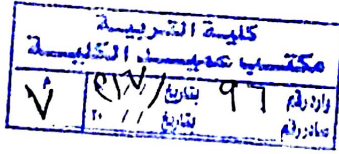 كلية التربية
مكتب عميد الكلية
وارد رقم ٩٦ بتاريخ
صادر رقم بتاريخ / / ٢٠